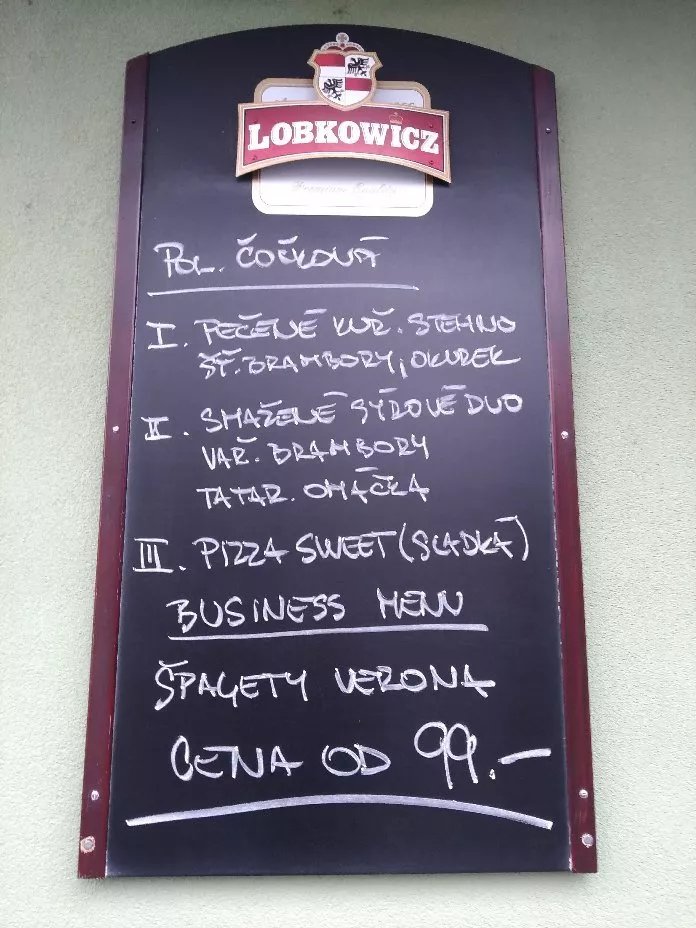 LOBKOWICZ
Premium Quality
POL. ČOČKOVÁ
I. PEČENÉ KUŘ. STEHNO
ŠŤ. BRAMBORY, OKUREK
II. SMAŽENÉ SÝROVÉ DUO
VAŘ. BRAMBORY
TATAR. OMÁČKA
III. PIZZA SWEET (SLADKÁ)
BUSINESS MENU
ŠPAGETY VERONA
CENA OD 99.-